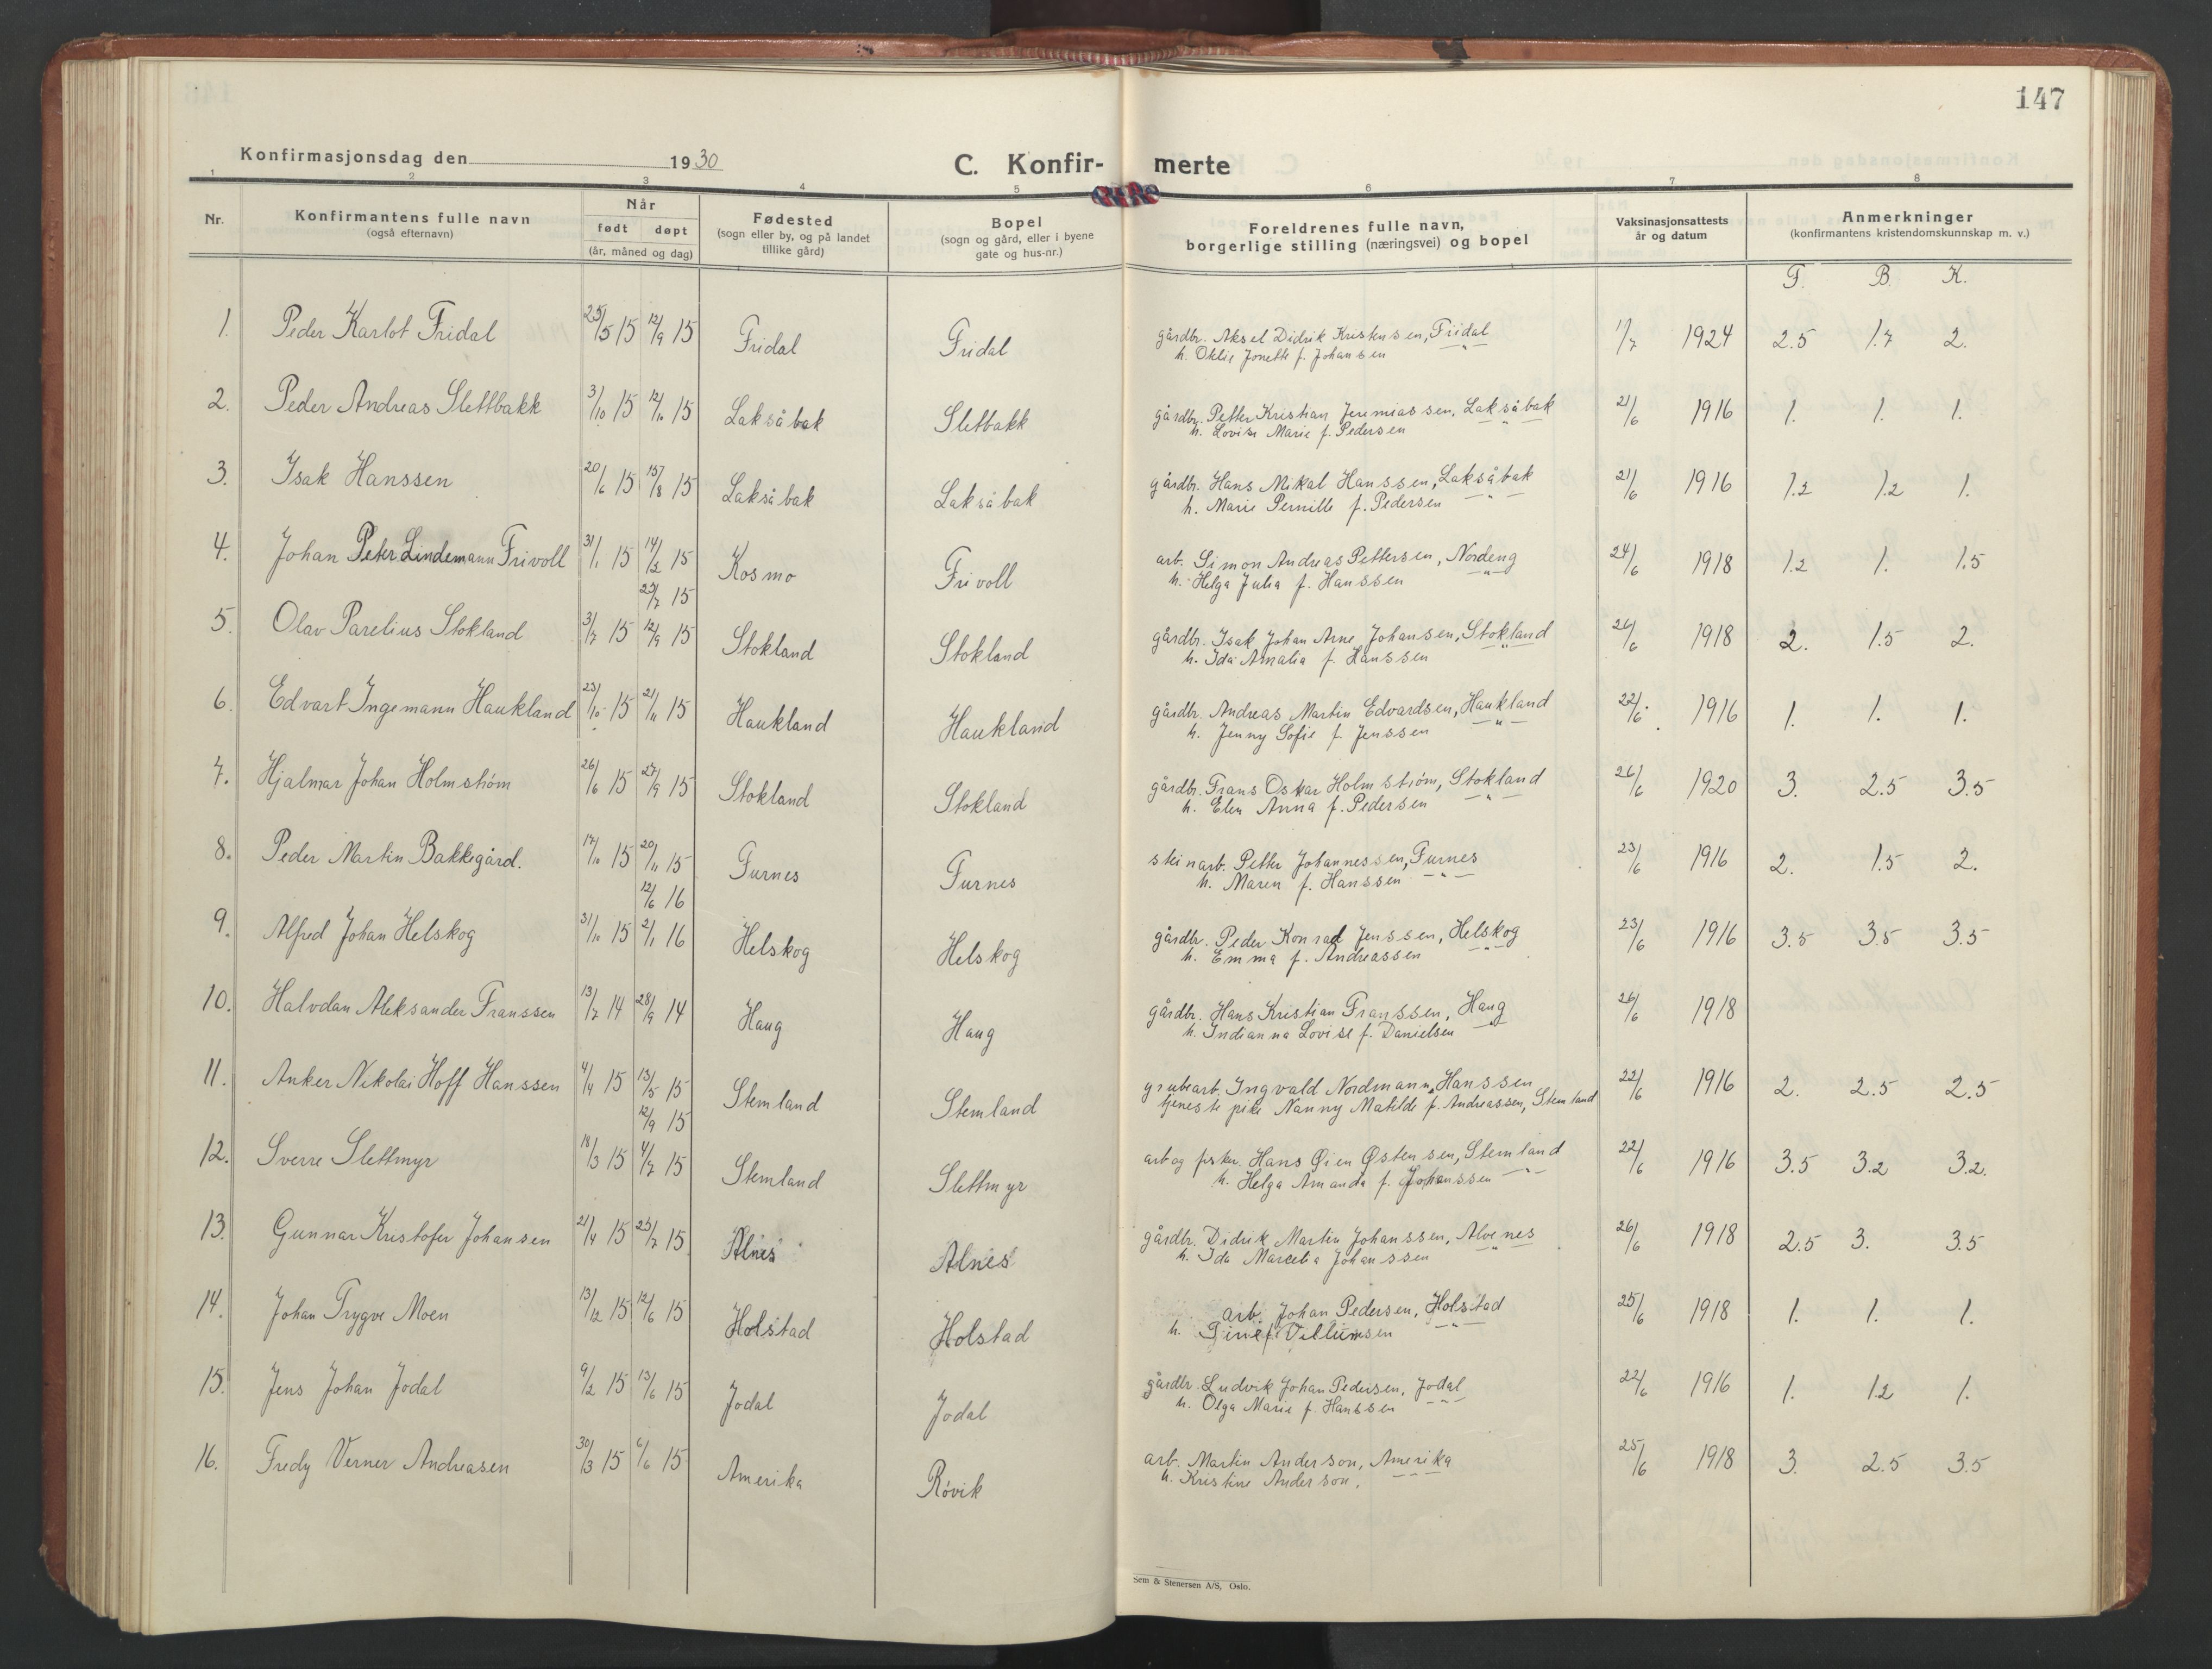 147
Konfirmasjonsdag den 1930
C. Konfir- merte
1 2 3 4 5 6 7 8
Nr.
Konfirmantens fulle navn
(også efternavn)
Når
født døpt
(år, måned og dag)
Fødested
(sogn eller by, og på landet
tillike gård)
Bopel
(sogn og gård, eller i byene
gate og hus-nr.)
Foreldrenes fulle navn,
borgerlige stilling (næringsvei) og bopel
Vaksinasjonsattests
år og datum
Anmerkninger
(konfirmantens kristendomskunnskap m. v.)
F. B. K.
1. Peder Karlot Fridal 25/5 15 12/9 15 Fridal Fridal gårdbr. Aksel Didrik Kristensen, Fridal 1/7 1924 2.5 1.7 2.
h. Jonette f. Johansen — " —
2. Peder Andreas Slettbakk 3/10 15 12/11 15 Laksåbak Sletbakk gårdbr. Petter Kristian Jeremiassen, Laksåbak 21/6 1916 1. 1. 1.
h. Lovise Marie f. Pedersen — " —
3. Isak Hanssen 20/6 15 15/8 15 Laksåbak Laksåbak gårdbr. Hans Mikal Hanssen, Laksåbak 21/6 1916 1.2 1.2 1.
h. Marie Pernille f. Pedersen — " —
4. Johan Peter Lindemann Frivoll 31/1 15 14/2 15 Kosmo Frivoll arb. Simon Andreas Pettersen, Nordeng 24/6 1918 1.2 1. 1.5
25/7 15 h. Helga Julia f. Hanssen — " —
5. Olav Parelius Stokland 3/7 15 12/9 15 Stokland Stokland gårdbr. Isak Johan Arne Johansen, Stokland 26/6 1918 2. 1.5 2.
h. Ida Amalia f. Hanssen — " —
6. Edvart Ingemann Haukland 23/10 15 21/11 15 Haukland Haukland gårdbr. Andreas Martin Edvardsen, Haukland 22/6 1916 1. 1. 1.
h. Jenny Sofie f. Jenssen — " —
7. Hjalmar Johan Holmstrøm 26/6 15 27/9 15 Stokland Stokland gårdbr. Frans Oskar Holmstrøm, Stokland 26/6 1920 3. 2.5 3.5
h. Elen Anna f. Pedersen — " —
8. Peder Martin Bakkegård. 17/10 15 20/11 15 Furnes Furnes steinarb. Petter Johannessen, Furnes 23/6 1916 2. 1.5 2.
12/6 16 h. Maren f. Hanssen — " —
9. Alfred Johan Helskog 31/10 15 2/1 16 Helskog Helskog gårdbr. Peder Konrad Jenssen, Helskog 23/6 1916 3.5 3.5 3.5
h. Emma f. Andreassen — " —
10. Halvdan Aleksander Franssen 13/7 14 28/9 14 Haug Haug gårdbr. Hans Kristian Franssen, Haug 26/6 1918
h. Indianna Lovise f. Danielsen — " —
11. Anker Nikolai Hoff Hanssen 4/4 15 13/5 15 Stemland Stemland grubearb. Ingvald Nordmann Hanssen 22/6 1916 2. 2.5 2.5
12/9 15 tjenestepike Nanny Matilde f. Andreassen, Stemland
12. Sverre Slettmyr 18/3 15 4/7 15 Stemland Slettmyr arb og fisker. Hans Øien Østensen, Stemland 22/6 1916 3.5 3.2 3.2.
h. Helga Amanda f. Johanssen — " —
13. Gunnar Kristofer Johansen 21/4 15 25/7 15 Alnes Alnes gårdbr. Didrik Martin Johanssen, Alvenes 26/6 1918 2.5 3. 3.5
h. Ida Marcelia Johanssen — " —
14. Johan Trygve Moen 13/12 15 12/6 15 Holstad Holstad arb. Johan Pedersen, Holstad 25/6 1918 1. 1. 1.
h. Tine f. Villumsen — " —
15. Jens Johan Jodal 9/2 15 13/6 15 Jodal Jodal gårdbr. Ludvik Johan Pedersen, Jodal 22/6 1916 1. 1.2 1.
h. Olga Marie f. Hanssen — " —
16. Fredy Verner Andreasen 30/3 15 6/6 15 Amerika Røvik arb. Martin Anderson, Amerika 25/6 1918 3. 2.5 3.5
h. Kristine Anderson.
Sem & Stenersen A/S, Oslo.